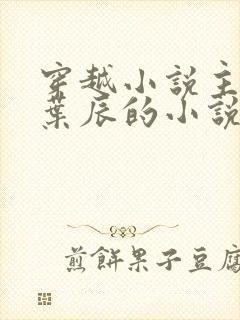 穿越小説主
葉辰的小説
煎餅果子豆腐